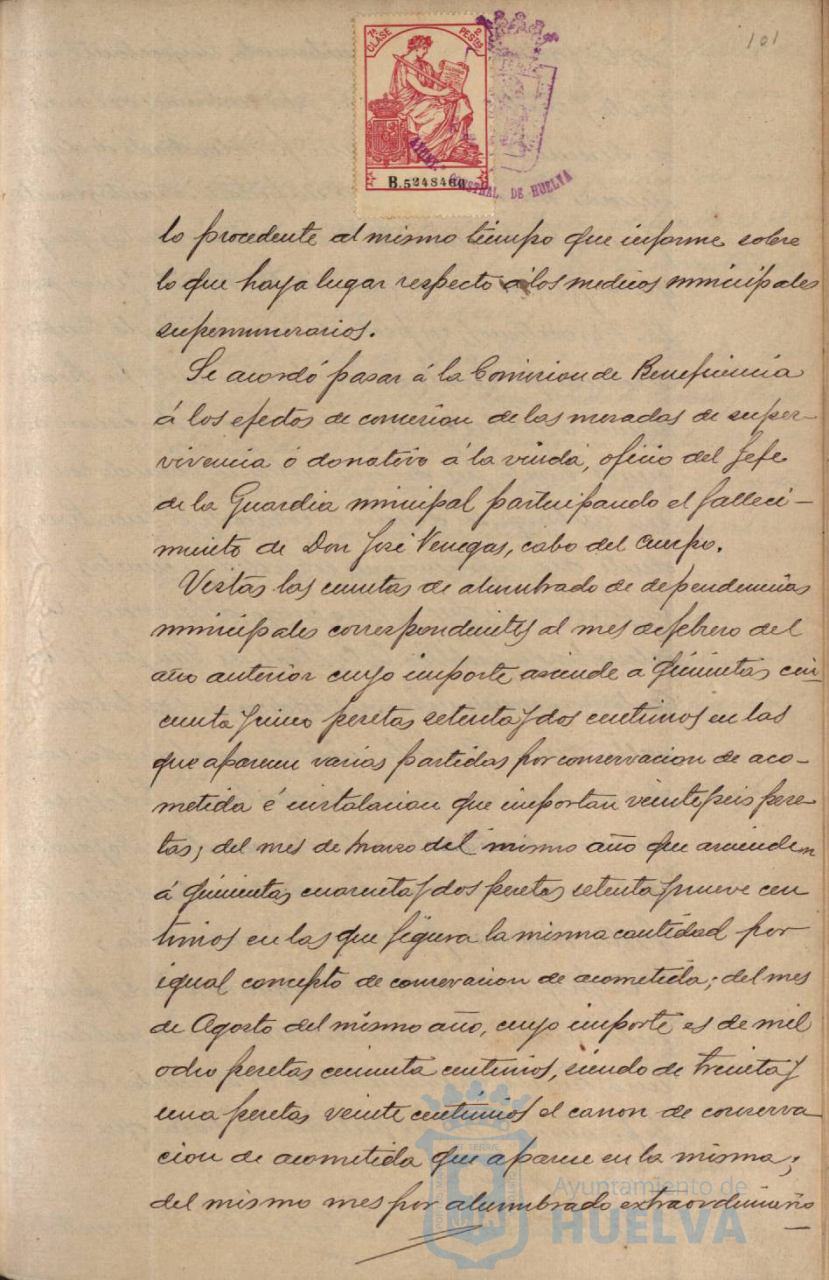 101
7ª CLASE
2 PESETAS
B.5248460
AYUNT. CONSTNAL. DE HUELVA
lo procedente al mismo tiempo que informe sobre
lo que haya lugar respecto a los medicos municipales
supernumerarios.
Se acordó pasar á la Comision de Beneficencia
á los efectos de concesion de las mesadas de super-
vivencia ó donativo á la viuda, oficio del Jefe
de la Guardia municipal participando el falleci-
miento de Don José Venegas, cabo del Cuerpo.
Vistas las cuentas de alumbrado de dependencias
municipales correspondientes al mes de febrero del
año anterior cuyo importe asciende á quinientas cin
cuenta y cinco pesetas setenta y dos centimos en las
que aparecen varias partidas por conservacion de aco-
metida é instalacion que importan veinte y seis pese-
tas; del mes de Marzo del mismo año que ascienden
á quinientas cuarenta y dos pesetas setenta y nueve cen
timos en las que figura la misma cantidad por
igual concepto de conservacion de acometida; del mes
de Agosto del mismo año, cuyo importe es de mil
ocho pesetas cincuenta centimos, siendo de treinta y
una pesetas veinte centimos el canon de conserva
cion de acometida que aparece en la misma;
del mismo mes por alumbrado extraordinario
Ayuntamiento de
HUELVA